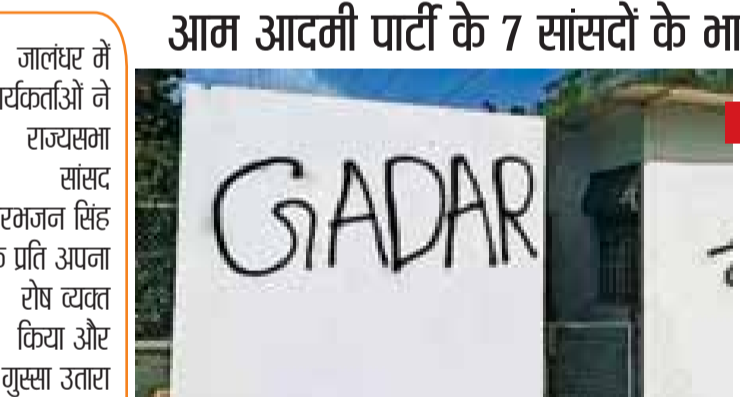 आम आदमी पार्टी के 7 सांसदों के
जालंधर में
राज्यसभा
सांसद
सिंह
प्रति अपना
रोष व्यक्त
किया और
गुस्सा उतारा
GADAR